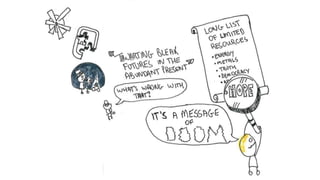 "IMAGING BLEAK
FUTURES IN THE
ABUNDANT PRESENT"
WHAT'S WRONG WITH
THAT?
LONG LIST
OF LIMITED
RESOURCES
• ENERGY
• METALS
• TRUTH
• DEMOCRACY
HOPE
IT'S A MESSAGE
OF
DOOM